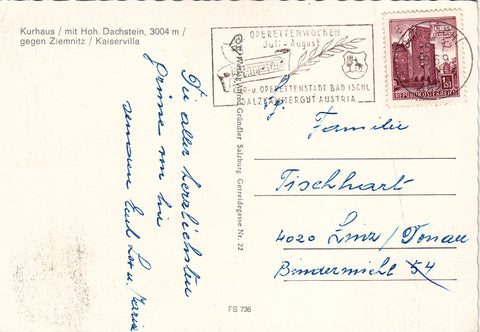 Kurhaus / mit Hoh. Dachstein, 3004 m /
gegen Ziemnitz / Kaiservilla
OPERETTENWOCHEN
Juli - August
KUR- u. OPERETTENSTADT BAD ISCHL
SALZKAMMERGUT AUSTRIA
REPUBLIK ÖSTERREICH
Die aller herzlichsten
Grüsse von hier
senden Euch
u. Maria
Alfred Gründler Salzburg Getreidegasse Nr. 22
Familie
Tischhart
4020 Linz / Donau
Bindermichl 54
FS 736